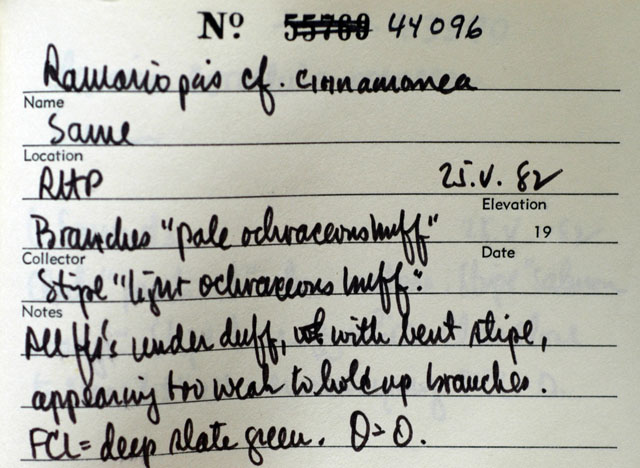 Nº 55760 44096
Ramariopsis cf. cinnamomea
Name
Same
Location
RHP 25.V.82
Elevation
Branches "pale ochraceous buff" 19
Collector Date
Stipe "light ochraceous buff".
Notes
All ff's under duff, with bent stipe,
appearing too weak to hold up branches.
FCL = deep slate green. O = O.